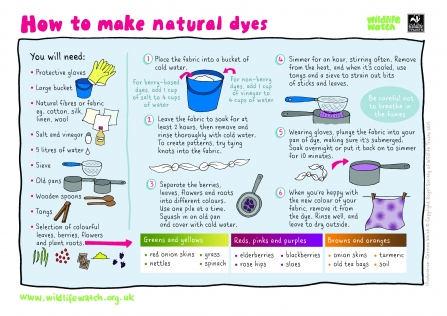 How to make natural dyes
wildlife
watch
You will need:
• Protective gloves
• Large bucket
• Natural fibres or fabric
eg. cotton, silk,
linen, wool
• Salt and vinegar
• 5 litres of water
• Sieve
• Old pans
• Wooden spoons
• Tongs
• Selection of colourful
leaves, berries, flowers
and plant roots
1 Place the fabric into a bucket of
cold water.
For berry-based
dyes, add 1 cup
of salt to 4 cups
of water
For non-berry
dyes, add 1 cup
of vinegar to
4 cups of water
2 Leave the fabric to soak for at
least 2 hours, then remove and
rinse thoroughly with cold water.
To create patterns, try tying
knots into the fabric.
3 Separate the berries,
leaves, flowers and roots
into different colours.
Use one pile at a time.
Squash in an old pan
and cover with cold water.
4 Simmer for an hour, stirring often. Remove
from the heat, and when it's cooled, use
tongs and a sieve to strain out bits
of sticks and leaves.
Be careful not
to breathe in
the fumes
5 Wearing gloves, plunge the fabric into your
pan of dye, making sure it's submerged.
Soak overnight or put it back on to simmer
for 10 minutes.
6 When you're happy with
the new colour of your
fabric, remove it from
the dye. Rinse well, and
leave to dry outside.
Greens and yellows
• red onion skins • grass
• nettles • spinach
Reds, pinks and purples
• elderberries • blackberries
• rose hips • sloes
Browns and oranges
• onion skins • turmeric
• old tea bags • soil
www.wildlifewatch.org.uk